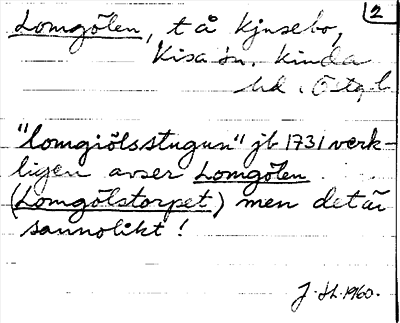 2
Lomgölen, t å Kjusebo,
Kisa sn. Kinda
hd. Östg.
"lomgiölsstugun" jb 1731 verk-
ligen avser Lomgölen
(Lomgölstorpet) men det är
sannolikt!
1960.